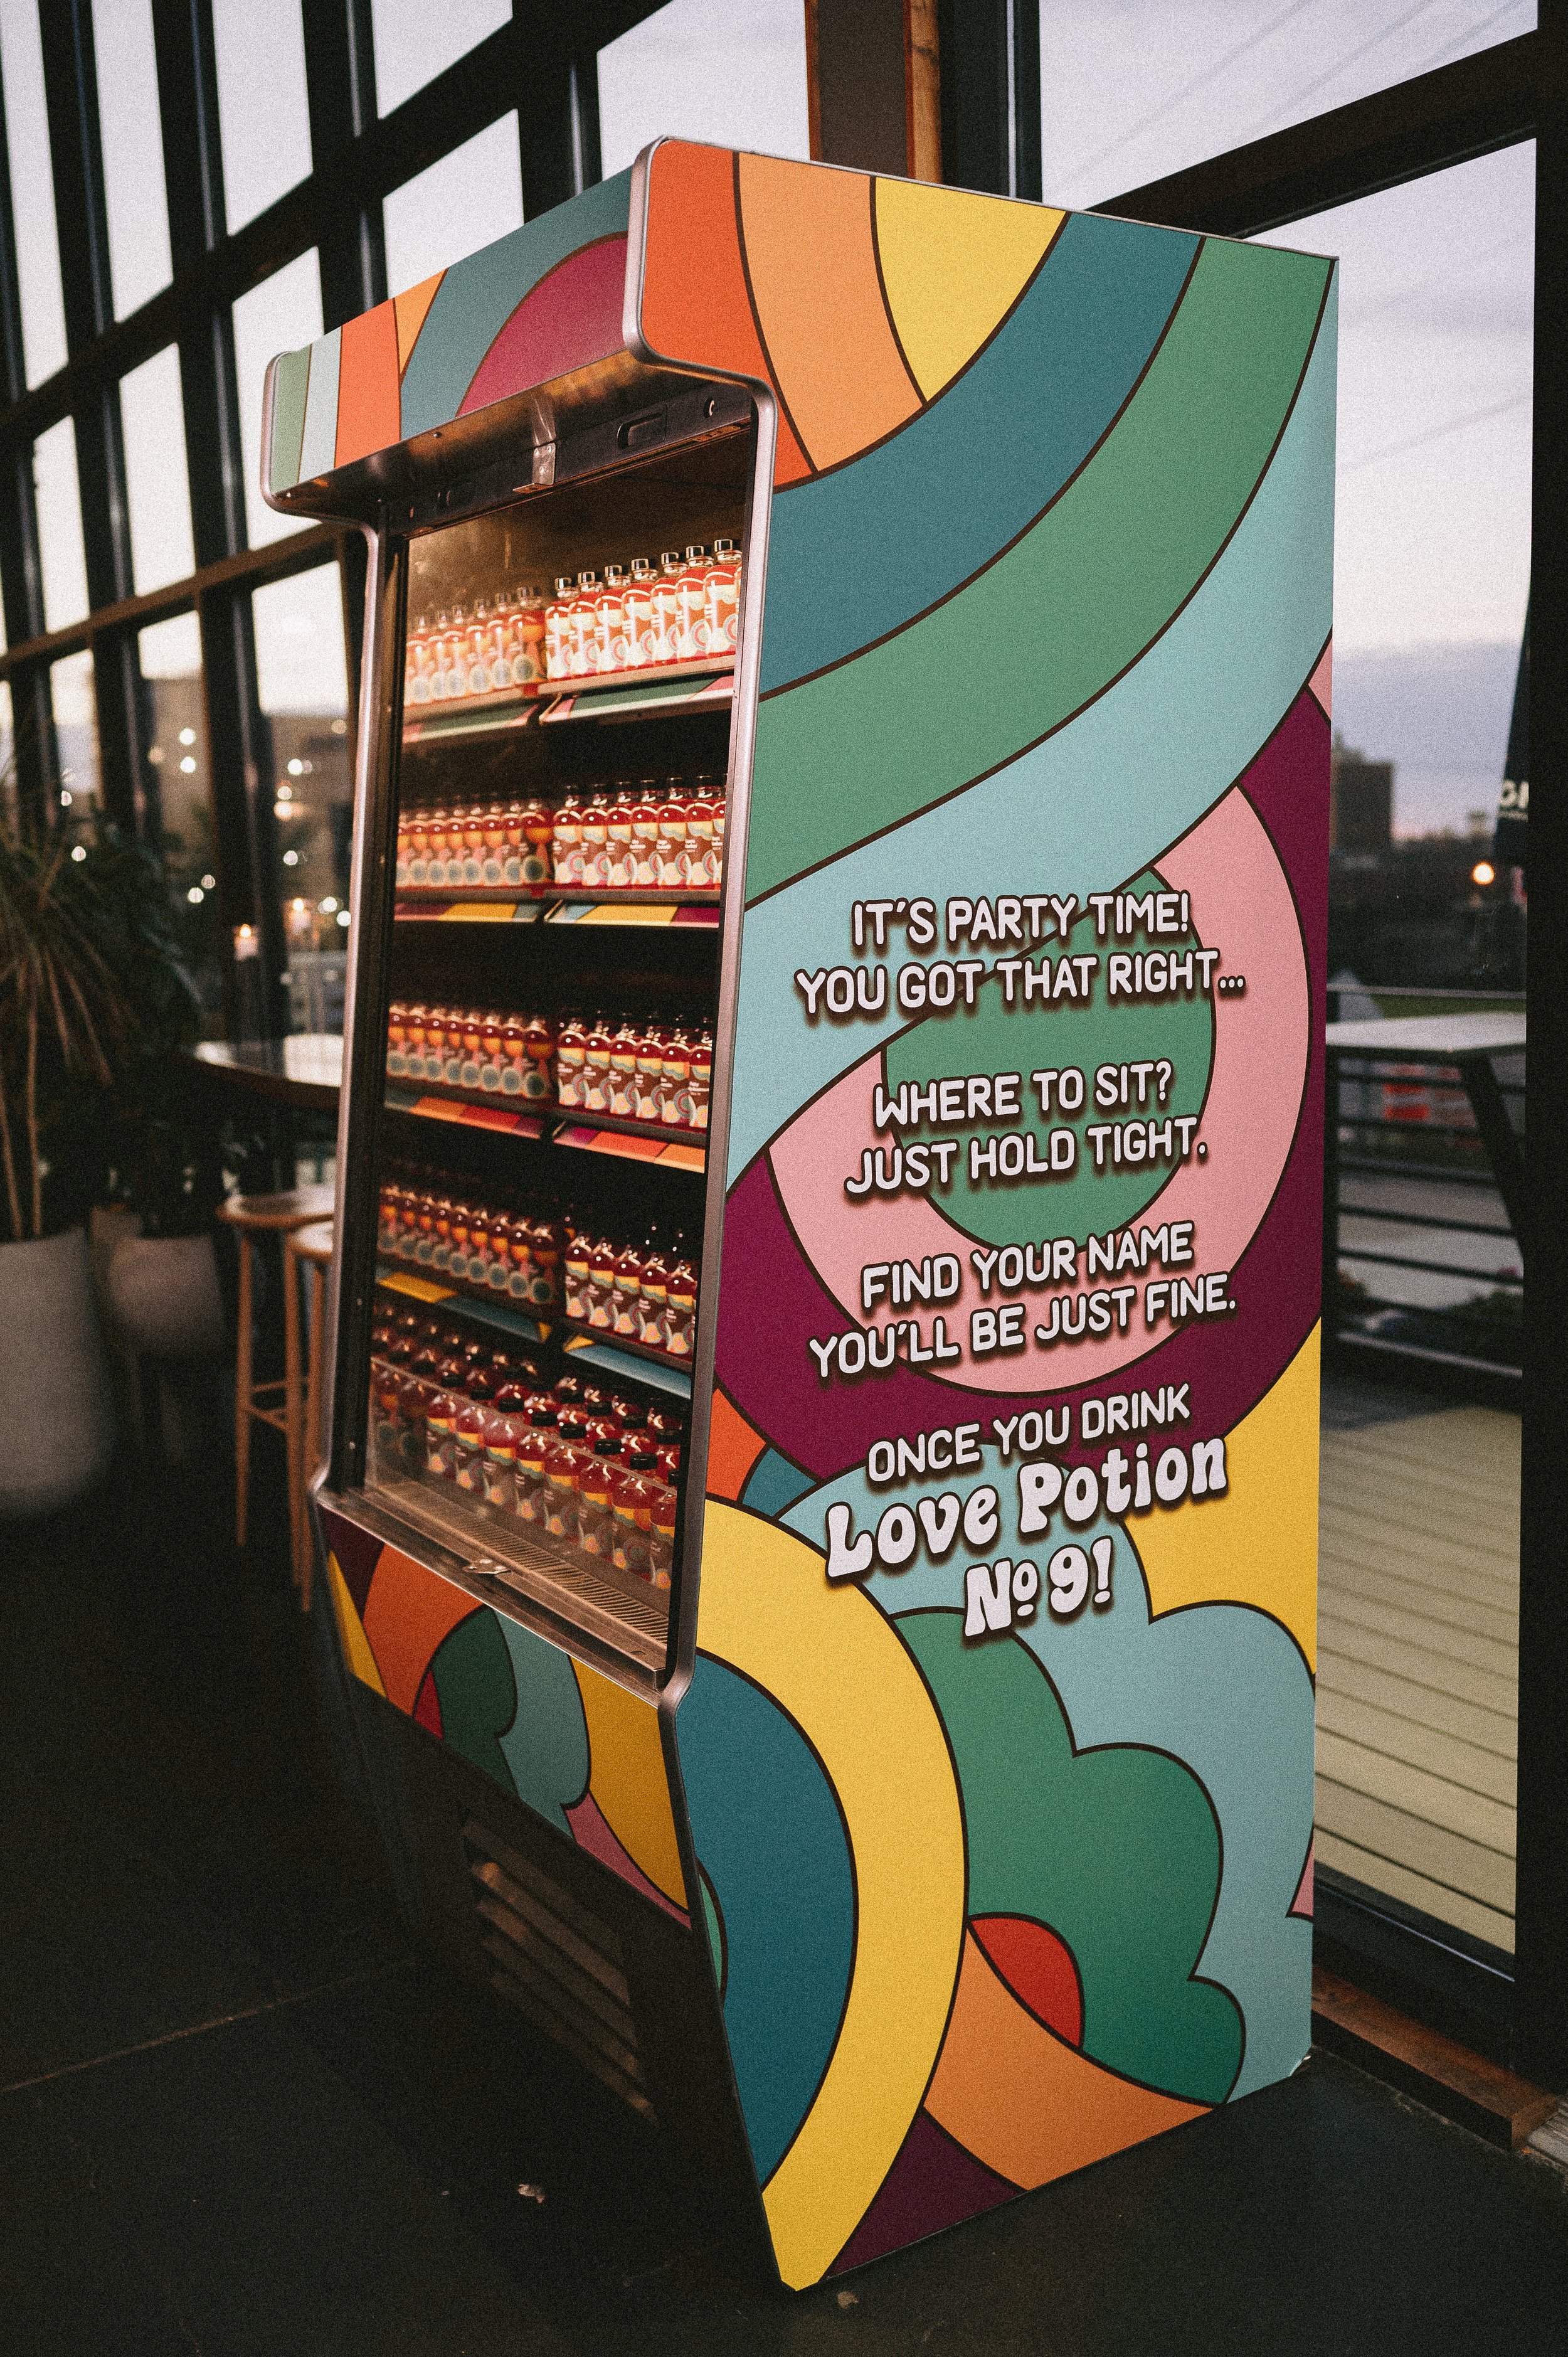 IT'S PARTY TIME!
YOU GOT THAT RIGHT...
WHERE TO SIT?
JUST HOLD TIGHT.
FIND YOUR NAME
YOU'LL BE JUST FINE.
ONCE YOU DRINK
Love Potion
Nº 9!